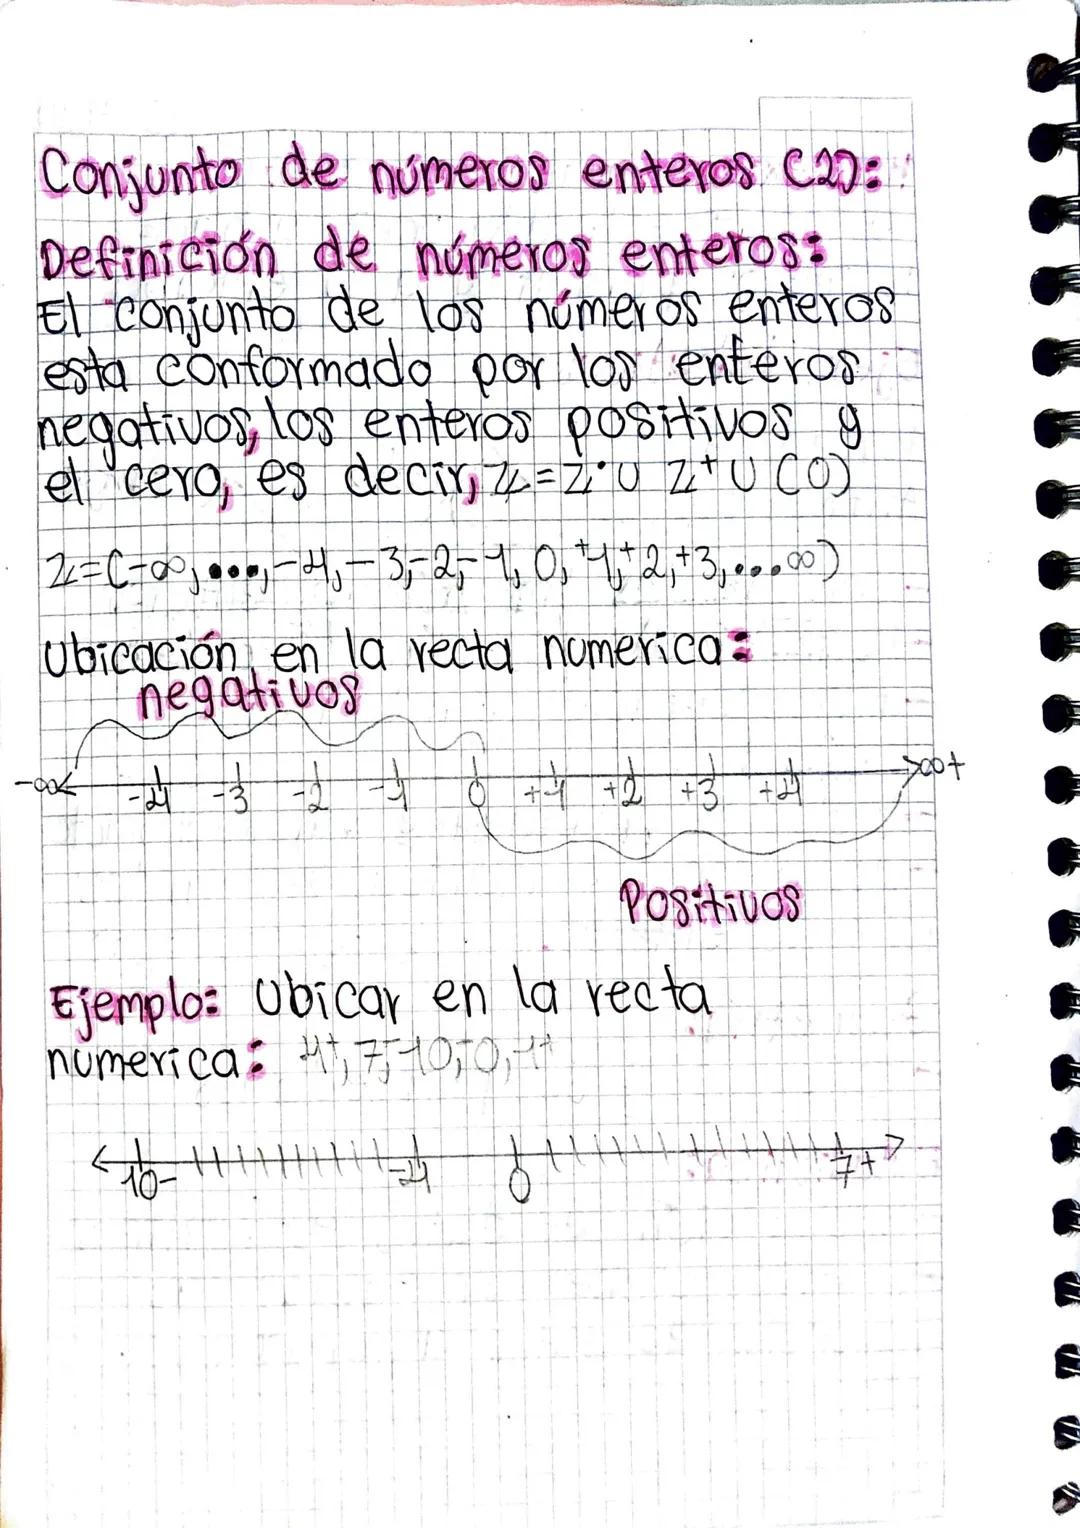 Conjunto de números enteros (Z):
Definición de números enteros:
El conjunto de los números enteros
esta conformado por los enteros
negativos, los enteros positivos y
el cero, es decir, Z=Z⁻U Z⁺U (0)
Z=(-∞,...,-4,-3,-2,-1,0,+1,+2,+3,...∞)
Ubicación en la recta numerica:
negativos
-∞ -4 -3 -2 -1 0 +1 +2 +3 +4 ∞+
Positivos
Ejemplo: Ubicar en la recta
numerica:
10- 0 7+